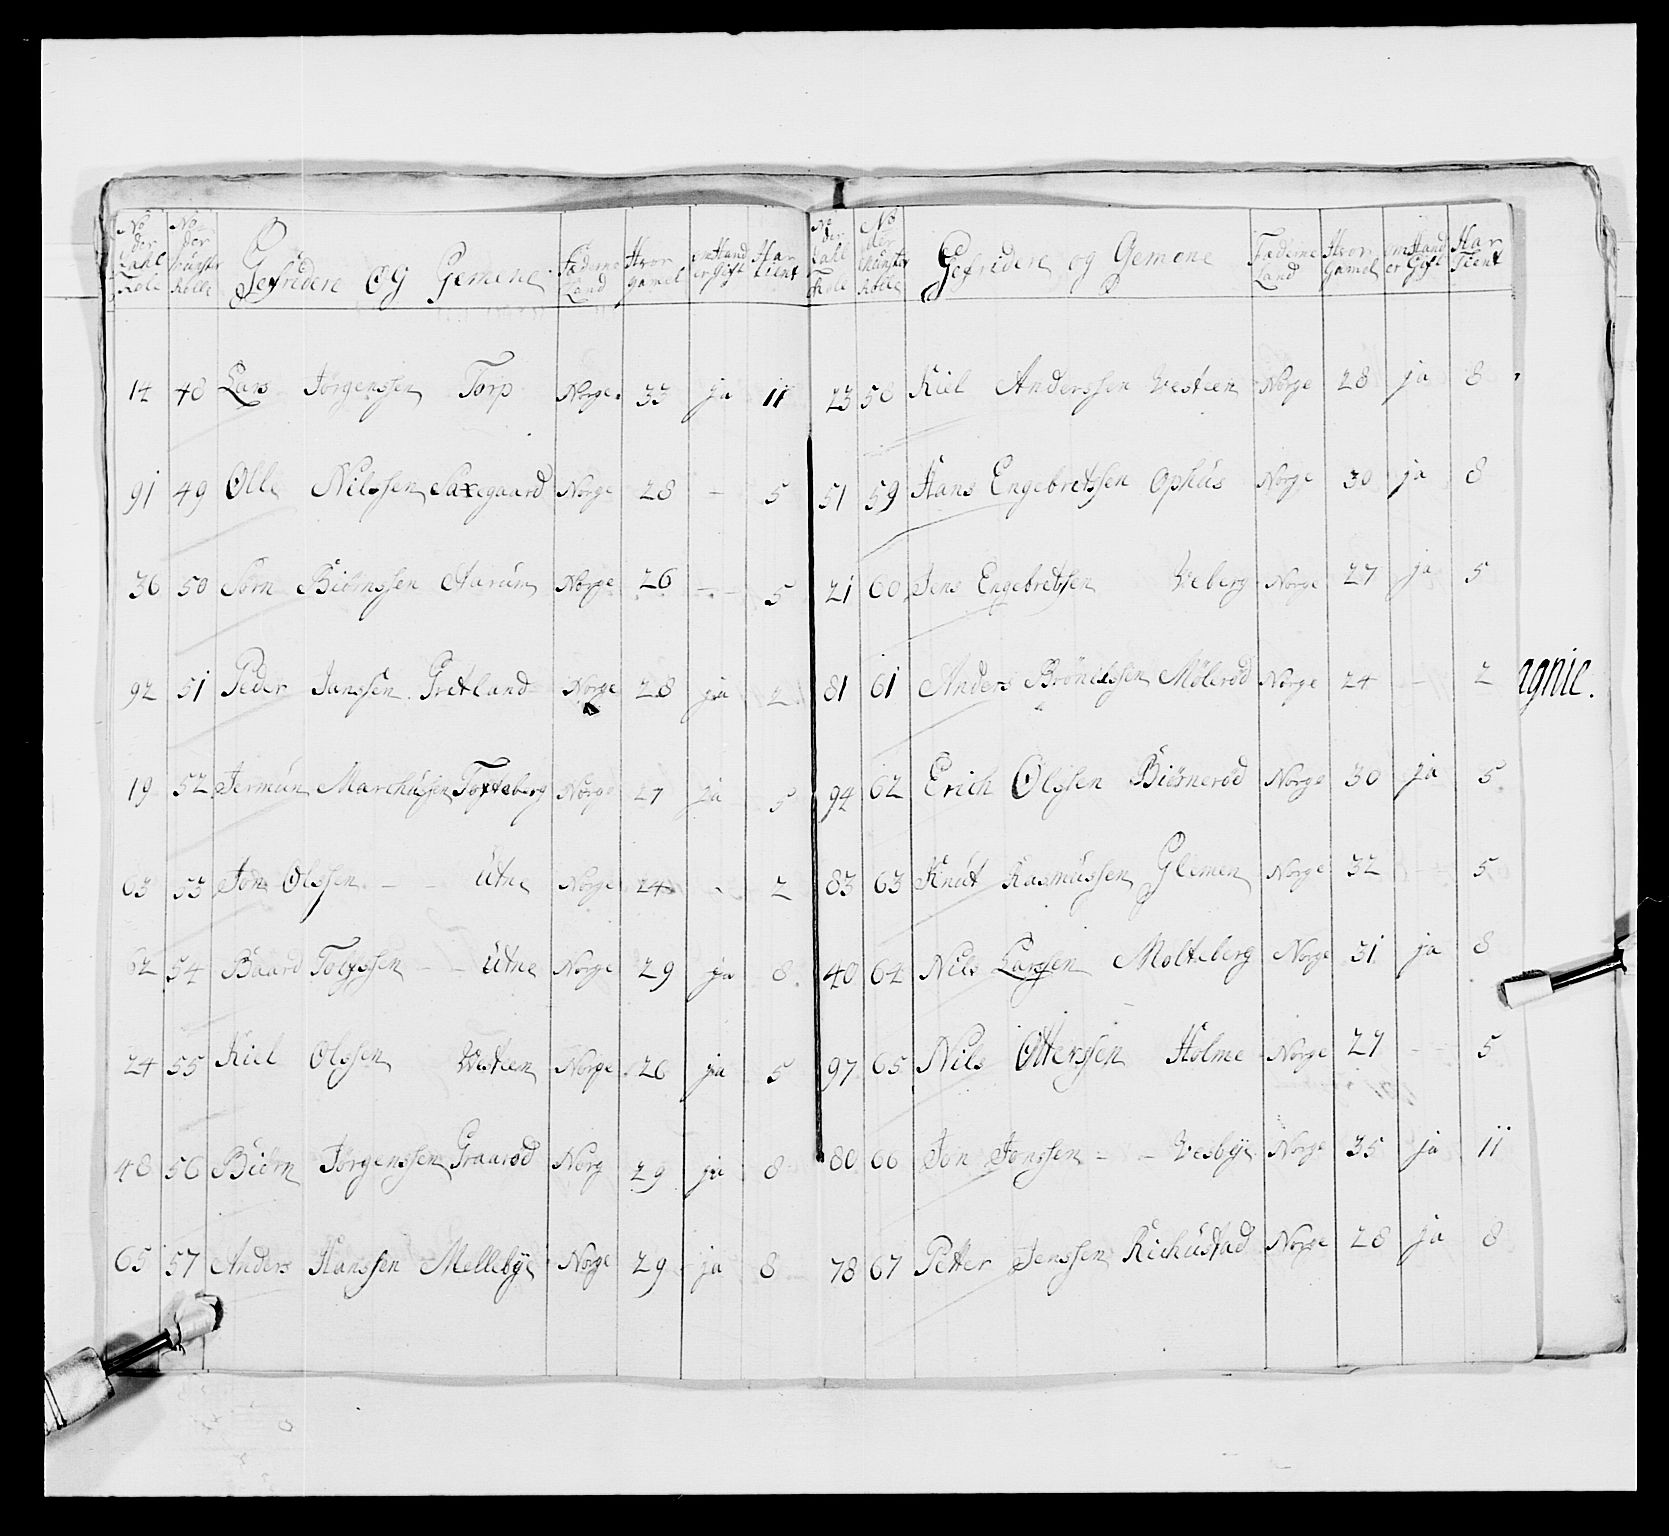 No der Tahl Role No der Munster Rolle Gefridere og Gemene Fæderne Land Hvor gamel om Hand er Gift Har tient
14 48 Lars Jörgenssen Torp Norge 33 ja 11
91 49 Olle Nilssen Saxegaard Norge 28 - 5
36 50 Sörn Biörnssen Aarum Norge 26 - 5
92 51 Peder Janssen Gretland Norge 28 ja 2
19 52 Jermün Marchüssen Tofteberg Norge 27 ja 5
63 53 Jon Olssen - - Ütne Norge 24 - 2
62 54 Baard Tolfssen - - Ütne Norge 29 ja 8
24 55 Kiel Olssen Vesteen Norge 26 ja 5
48 56 Biörn Jörgenssen Graaröd Norg 29 ja 8
65 57 Anders Hanssen Mellebye Norge 29 ja 8
No der Tahl Role No der Munster Rolle Gefridere og Gemene Fæderne Land Hvor Gamel om Hand er Gift Har Tient
23 58 Kiel Anderssen Vesteen Norge 28 ja 8
51 59 Hans Engebretssen Ophüs Norge 30 ja 8
21 60 Jens Engebretssen Veberg Norge 27 ja 5
81 61 Anders Brönilssen Möleröd Norge 24 - 2
94 62 Erich Olssen Biörneröd Norge 30 ja 5
83 63 Knüt Rasmüssen Glemen Norge 32 - 5
40 64 Nils Larssen Molteberg Norge 31 ja 8
97 65 Nils Otterssen Holme Norge 27 - 5
80 66 Jon Jonssen - - Vesbÿe Norge 35 ja 11
78 67 Petter Jenssen Kichüstad Norge 28 ja 8
agnie.